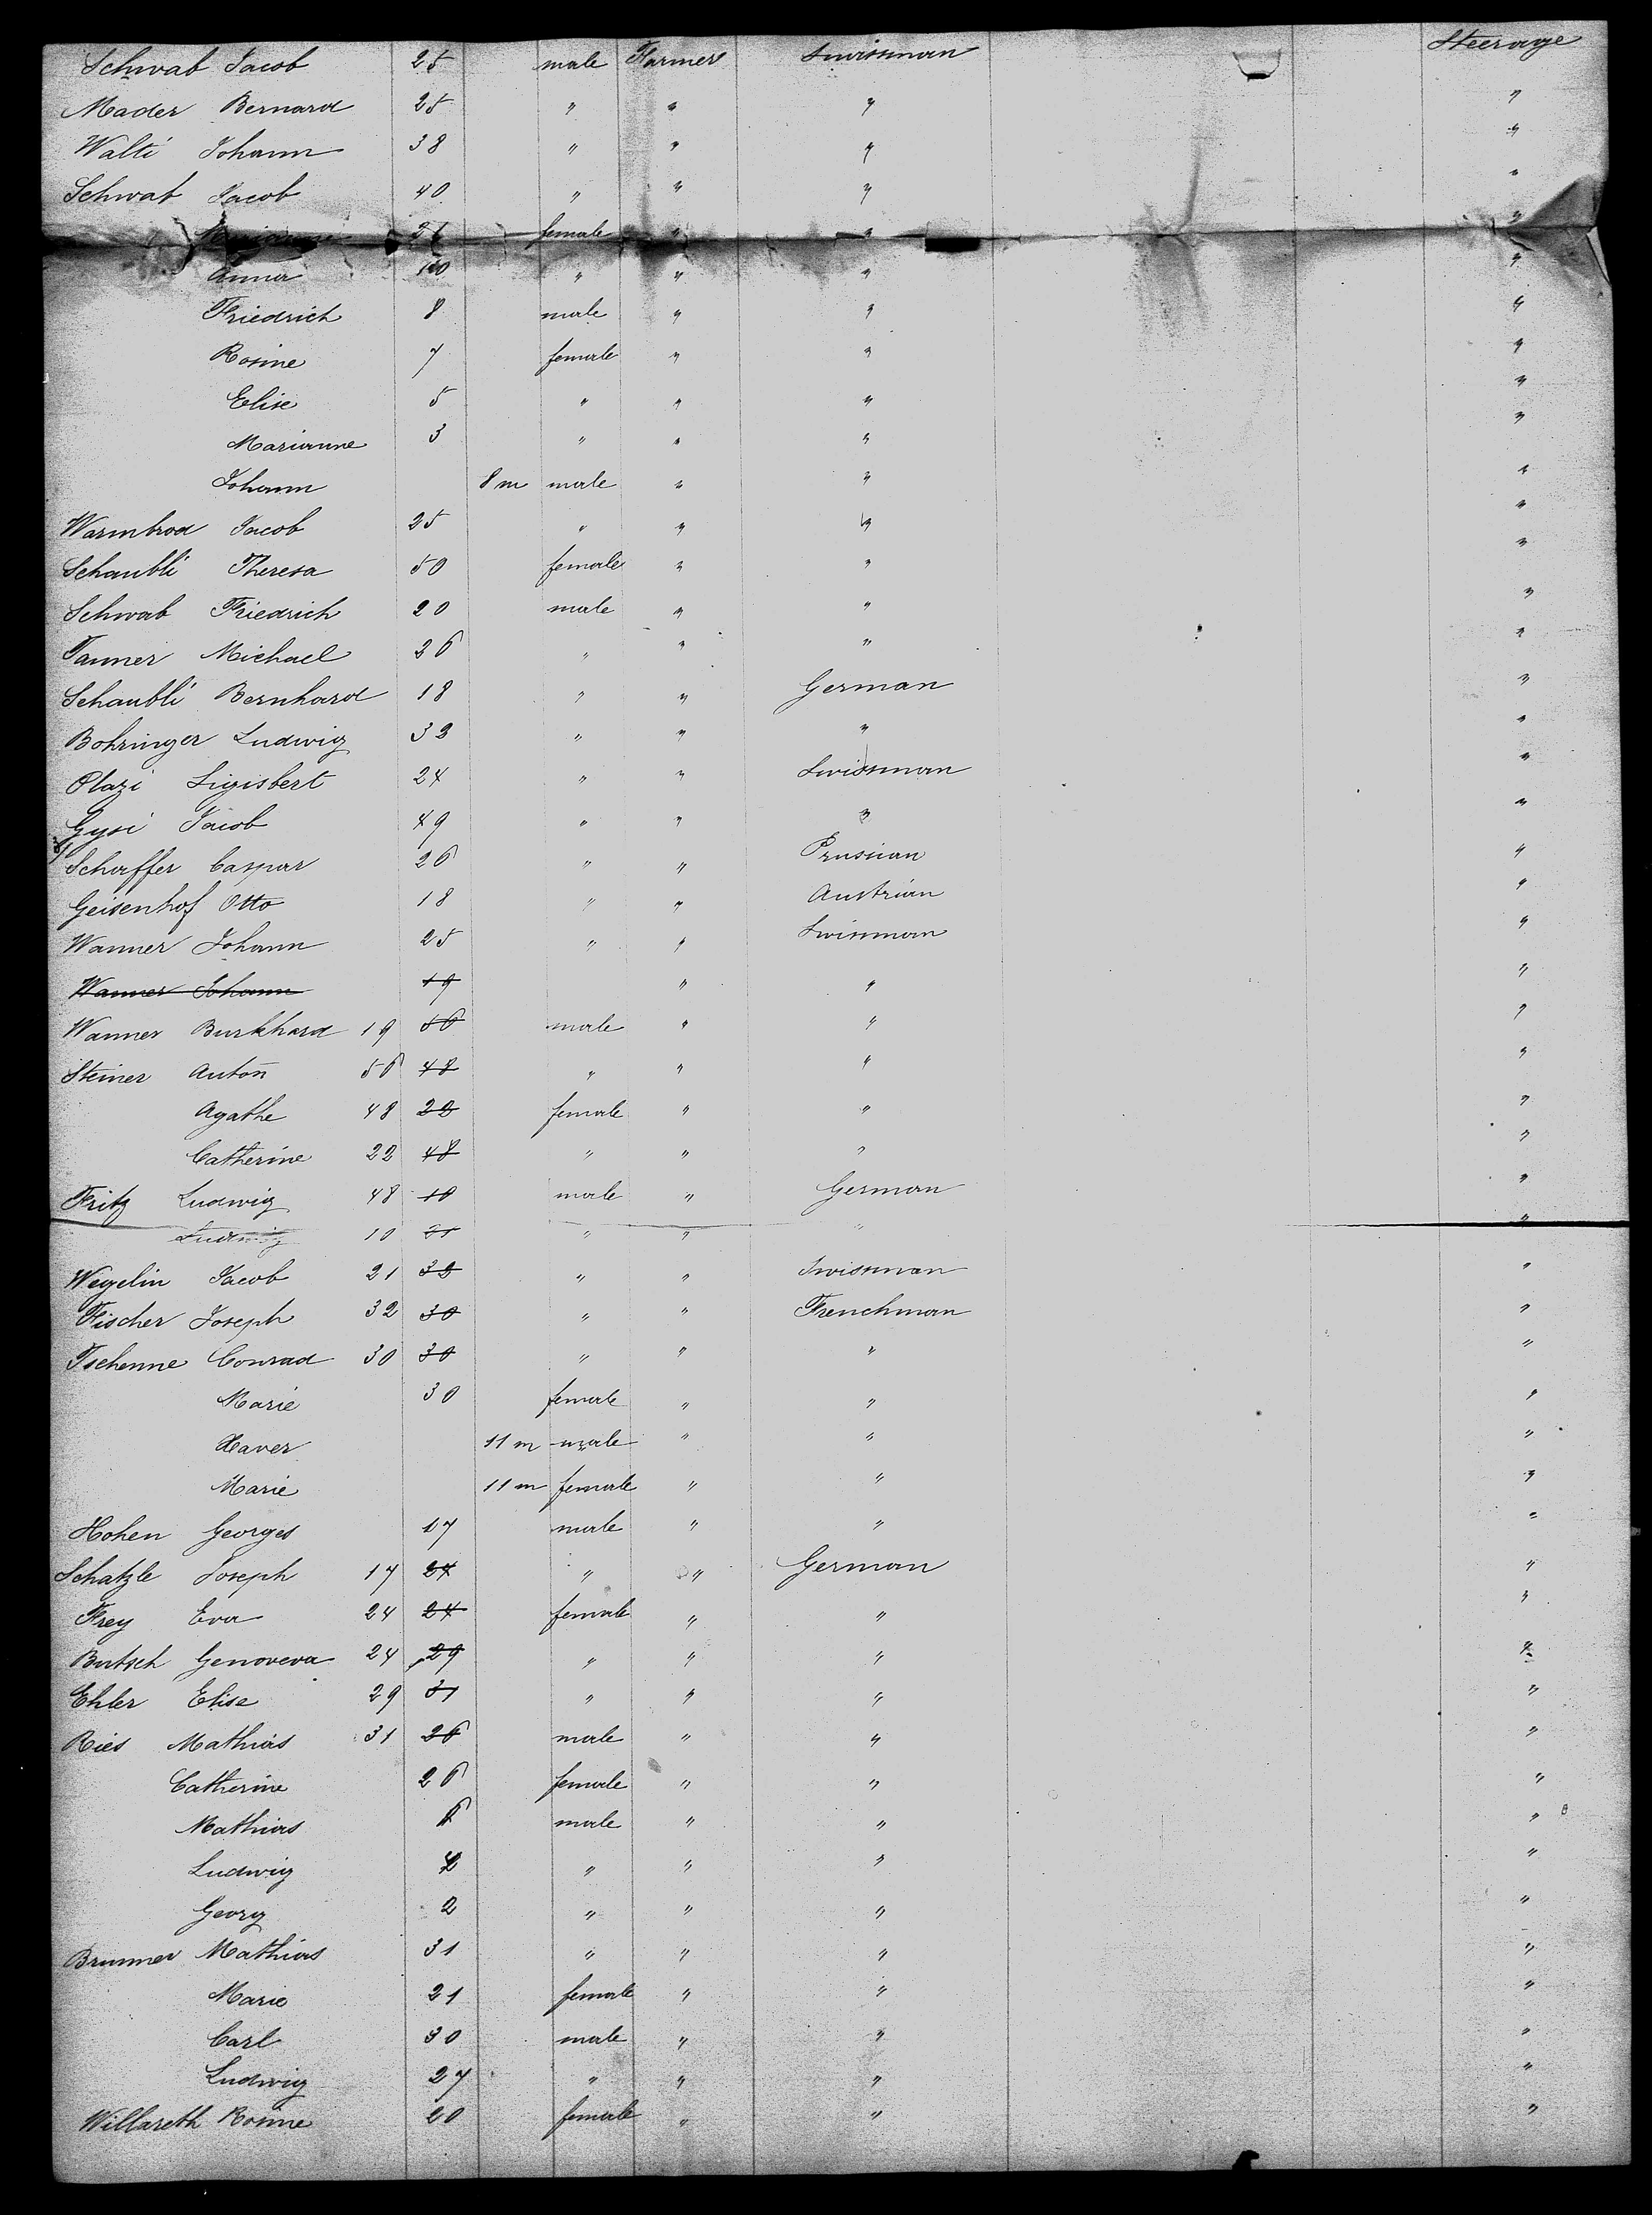 Schwab Jacob 25 male Farmer Swissman Steerage
Mader Bernard 25 " " " "
Walti Johann 38 " " " "
Schwab Jacob 40 " " " "
female " " "
Anna 10 " " " "
Friedrich 8 male " " "
Rosine 7 female " " "
Elise 5 " " " "
Marianne 3 " " " "
Johann 8 m male " " "
Warmbrod Jacob 25 " " " "
Schaubli Theresa 50 female " " "
Schwab Friedrich 20 male " " "
Tanner Michael 26 " " " "
Schaubli Bernhard 18 " " German "
Bohringer Ludwig 32 " " " "
Plazi Sigisbert 24 " " Swissman "
Gysi Jacob 49 " " " "
Schaffer Caspar 26 " " Prussian "
Geisenhof Otto 18 " " Austrian "
Wanner Johann 25 " " Swissman "
Wanner Johann 19 " " "
Wanner Burkhard 19 56 male " " "
Steiner Anton 56 48 " " " "
Agathe 48 22 female " " "
Catherine 22 48 " " " "
Fritz Ludwig 48 10 male " German "
Ludwig 10 21 " " " "
Wegelin Jacob 21 32 " " Swissman "
Fischer Joseph 32 30 " " Frenchman "
Tschenne Conrad 30 30 " " " "
Marie 30 female " " "
Xaver 11 m male " " "
Marie 11 m female " " "
Hohen Georges 17 male " " "
Schatzle Joseph 17 24 " " German "
Frey Eva 24 24 female " " "
Butsch Genoveva 24 29 " " " "
Ehler Elise 29 31 " " " "
Ries Mathias 31 26 male " " "
Catherine 26 female " " "
Mathias 6 male " " "
Ludwig " " " "
Georg 2 " " " "
Brunner Mathias 31 " " " "
Marie 21 female " " "
Carl 30 male " " "
Ludwig 27 " " " "
Willareth Rosine 20 female " " "